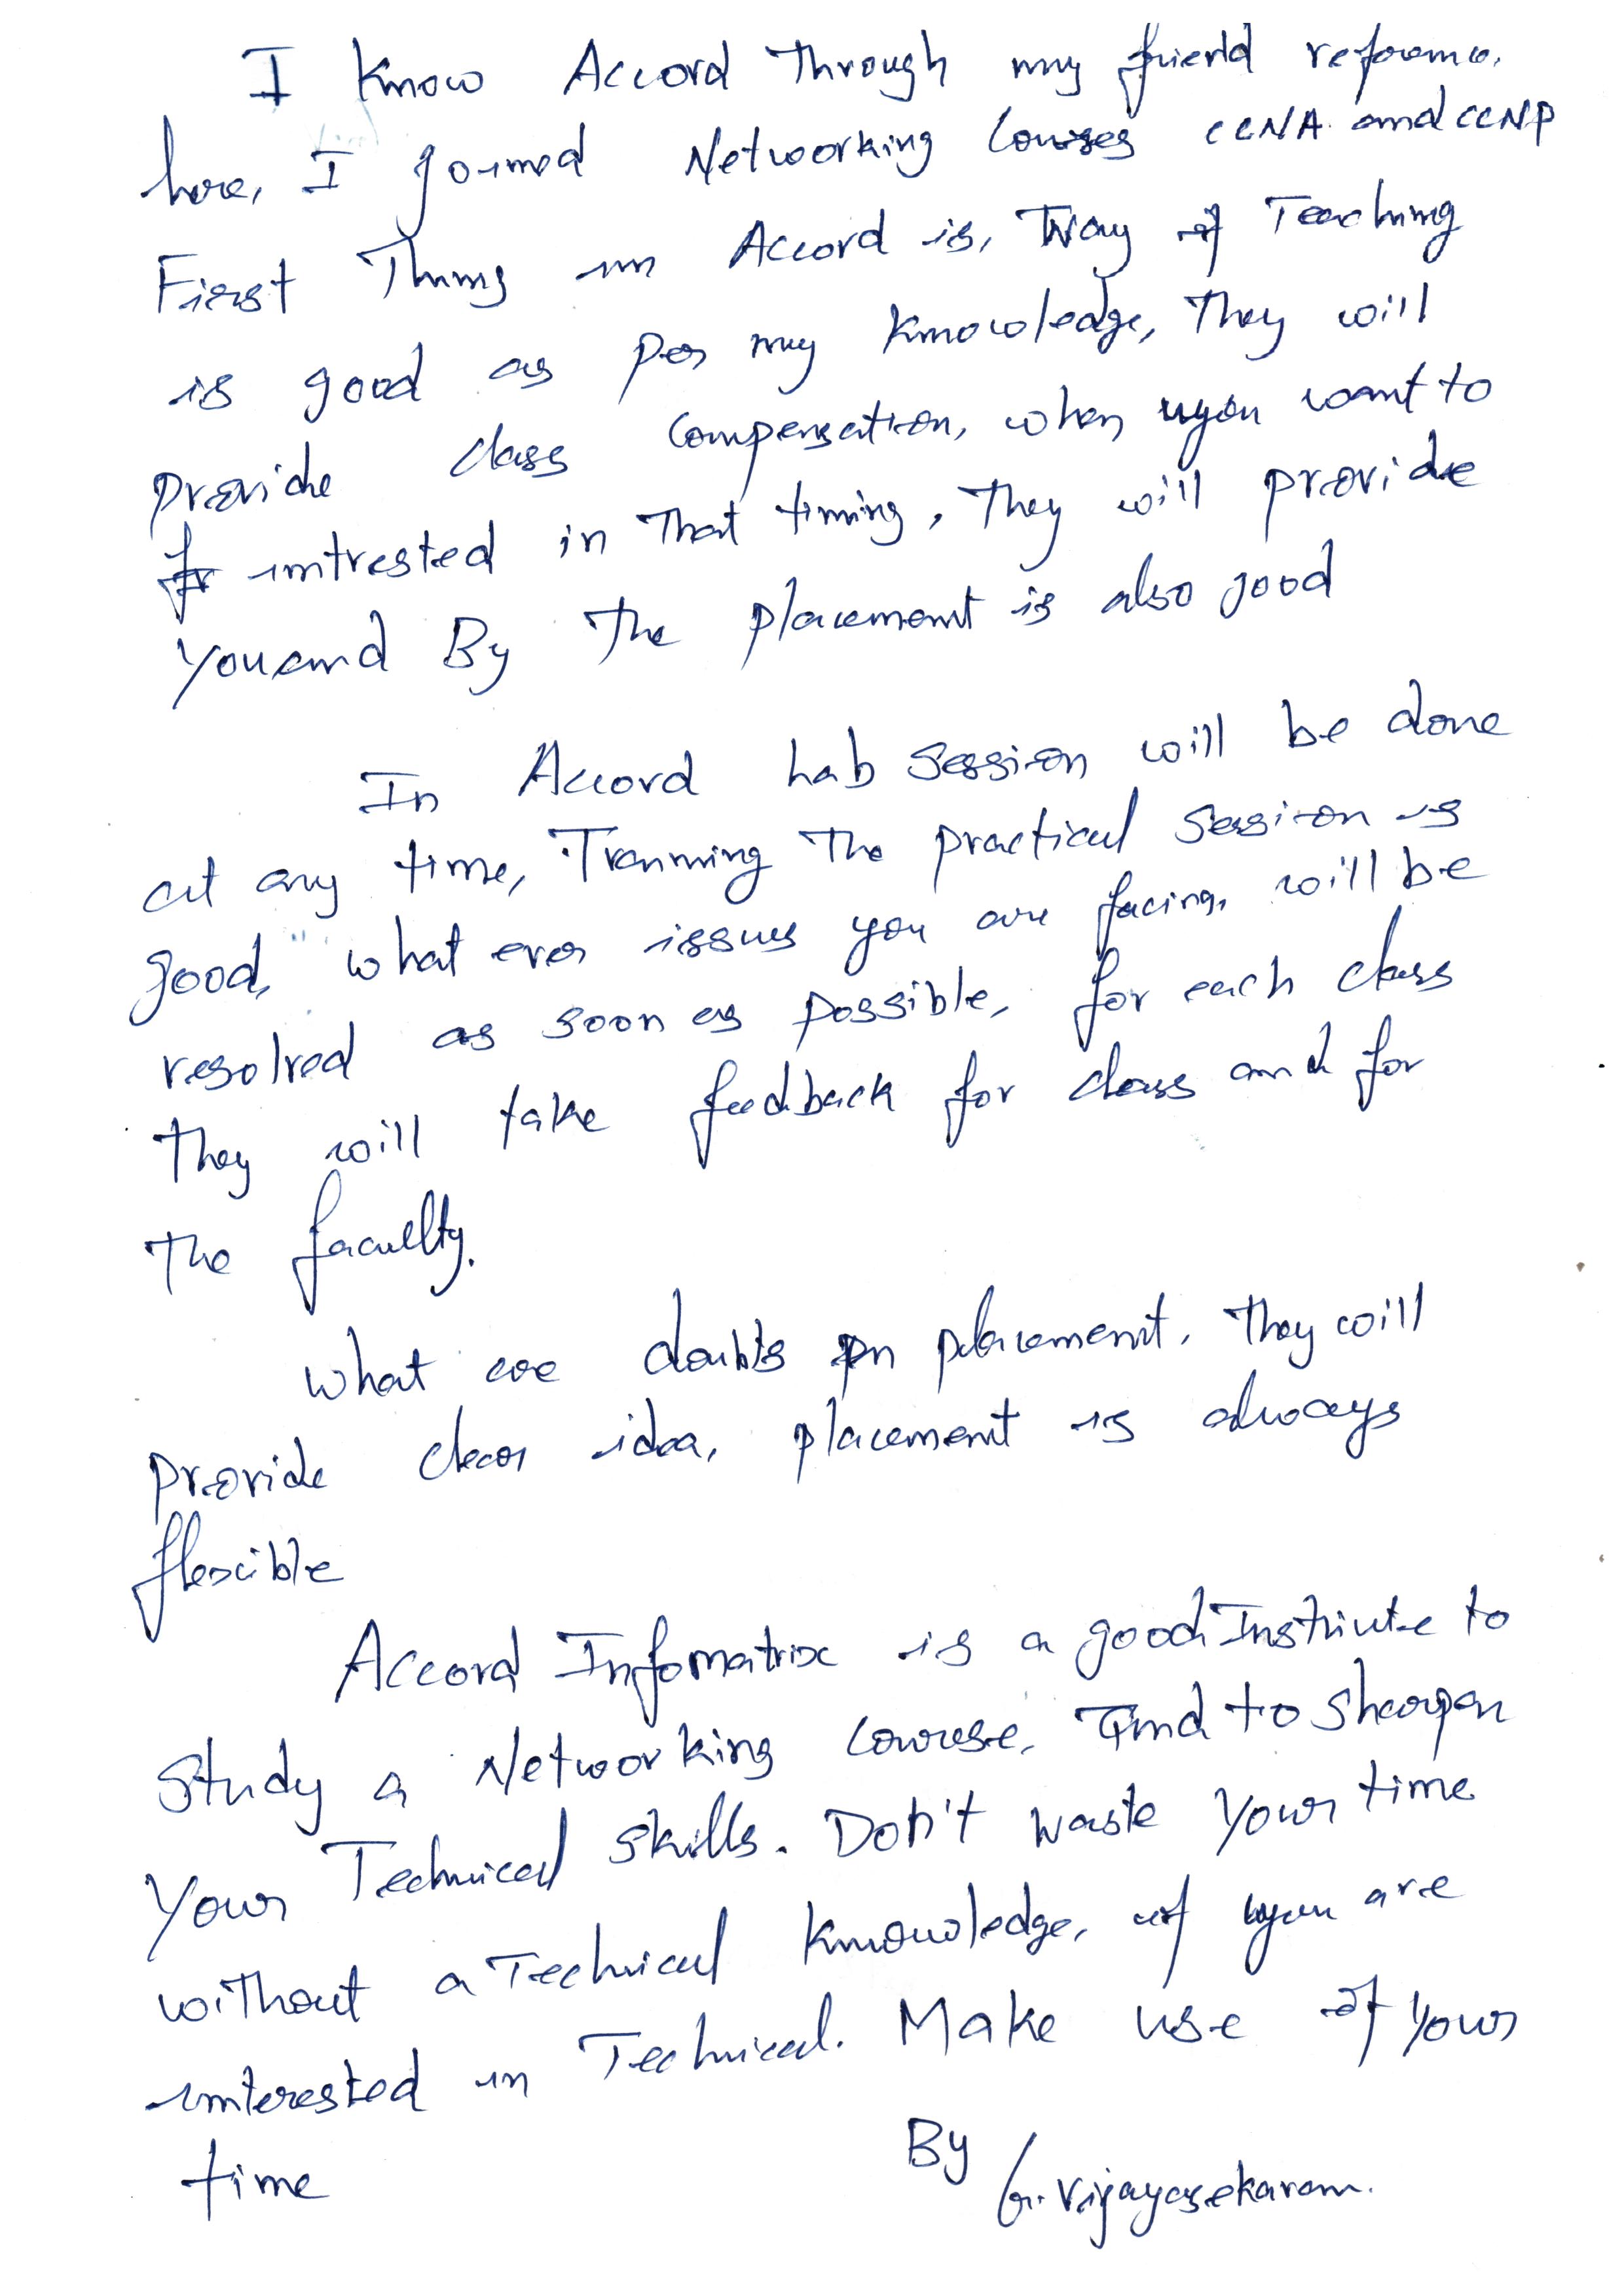 I know Accord Through my friend reference.
here, I joined Networking Courses CCNA and CCNP
First Thing in Accord is, Way of Teaching
is good as per my knowledge, They will
provide class compensation, when you want to
intrested in That timing, They will provide
you and By The placement is also good
In Accord Lab Session will be done
at any time, Tranning The practical Session is
good, what ever issues you are facing, will be
resolved as soon as possible, for each class
They will take feedback for class and for
The faculty.
What are doubts in placement, They will
provide clear idea, placement is always
flexible
Accord Infomatrix is a good Institute to
study a Networking Course, and to Sharpen
Your Technical skills. Don't waste Your time
without a Technical knowledge, if you are
interested in Technical. Make use of Your
time
By G. Vijayasekaram.